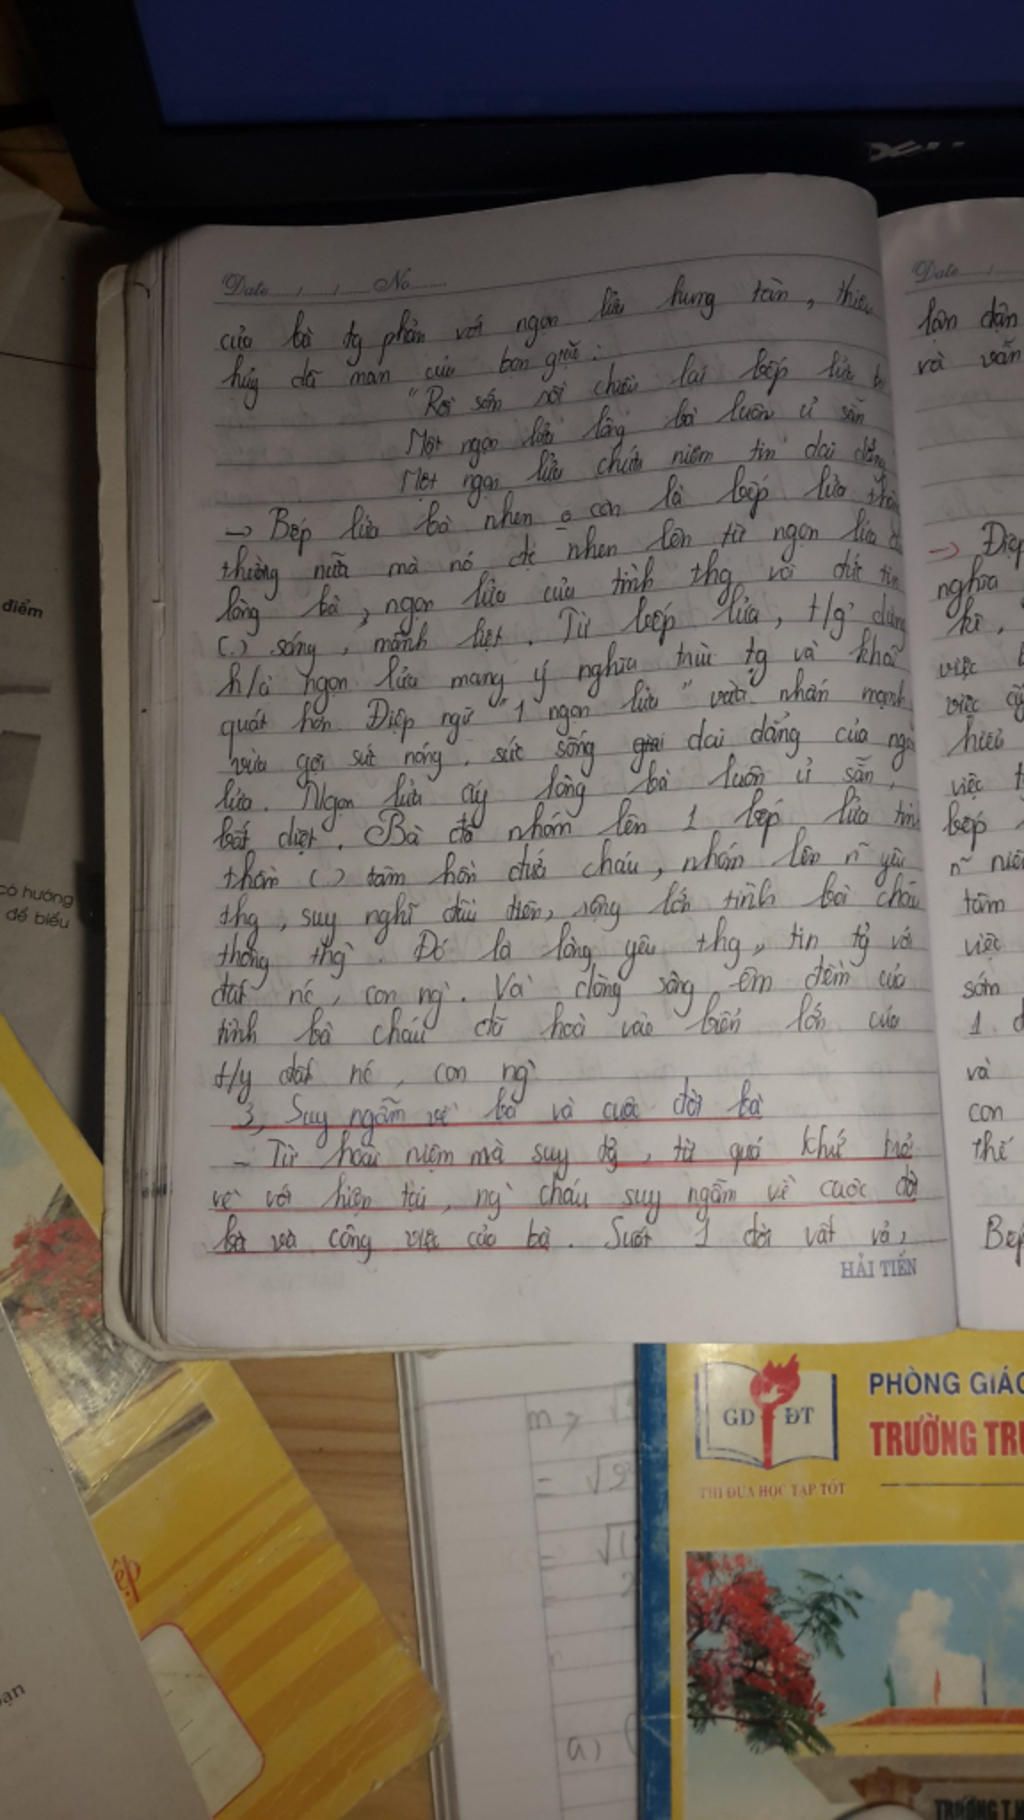 Date No
của bà tg phản với ngọn lửa hung tàn, thiêu
hủy dã man của bọn giặc:
"Rồi sớm rồi chiều lại bếp lửa
Một ngọn lửa lòng bà luôn ủ sẵn
Một ngọn lửa chứa niềm tin dai dẳng
→ Bếp lửa bà nhen o còn là bếp lửa
thường nữa mà nó đc nhen lên từ ngọn lửa
lòng bà, ngọn lửa của tình thg và đức tin
(.) sáng, mãnh liệt. Từ bếp lửa, t/g dùng
h/ả ngọn lửa mang ý nghĩa trừu tg và khái
quát hơn Điệp ngữ "1 ngọn lửa" vừa nhấn mạnh
vừa gợi sức nóng, sức sống dai dẳng của ngọ
lửa. Ngọn lửa ấy lòng bà luôn ủ sẵn,
bất diệt. Bà đã nhóm lên 1 bếp lửa tinh
thần (.) tâm hồn đứa cháu, nhóm lên n~ yêu
thg, suy nghĩ rộng lớn tình bà cháu
thông thg`. Đó là lòng yêu thg, tin tg với
đất nc, con ng`. Và dòng sông êm đềm của
tình bà cháu đã hoà vào biển lớn của
t/y đất nc, con ng`
3, Suy ngẫm về bà và cuộc đời bà
- Từ hoài niệm mà suy tg, từ quá khứ trở
về với hiện tại, ng` cháu suy ngẫm về cuộc đời
bà và công việc của bà. Suốt 1 đời vất vả,
HẢI TIẾN
Date
lận đận
và vẫn
→ Điệp
nghĩa
kì,
việc
việc
hiểu
việc
bếp
n~ niề
tâm
việc
sớm
1
và
con
thế
Bếp
điểm
có hướng
để biểu
ệp
bạn
m >
=
= √1
a)
GD ĐT
THI ĐUA HỌC TẬP TỐT
PHÒNG GIÁO
TRƯỜNG TRU
TRƯỜNG T.H